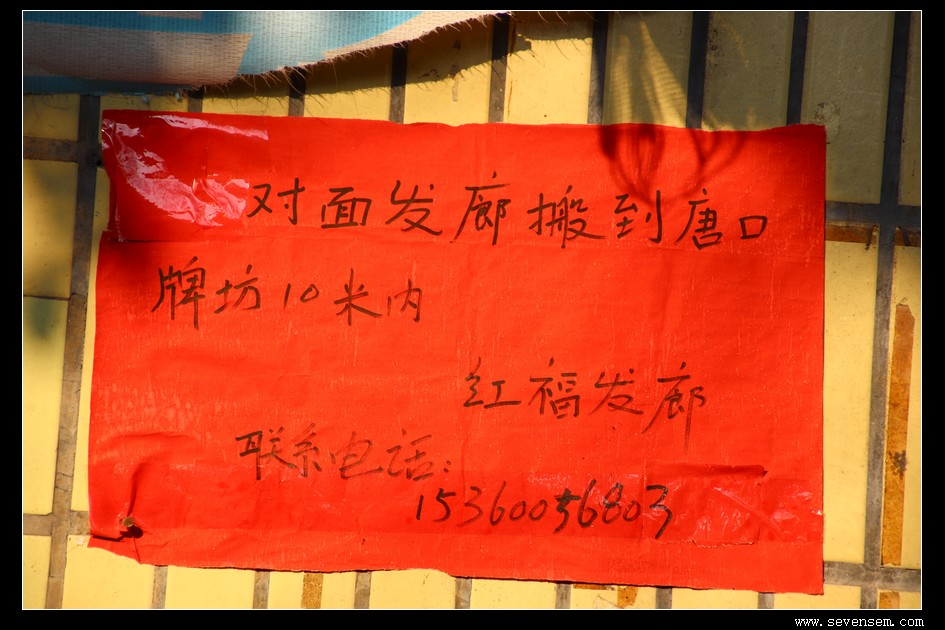 对面发廊搬到唐口
牌坊10米内
红福发廊
联系电话:
15360056803
www.sevensem.com